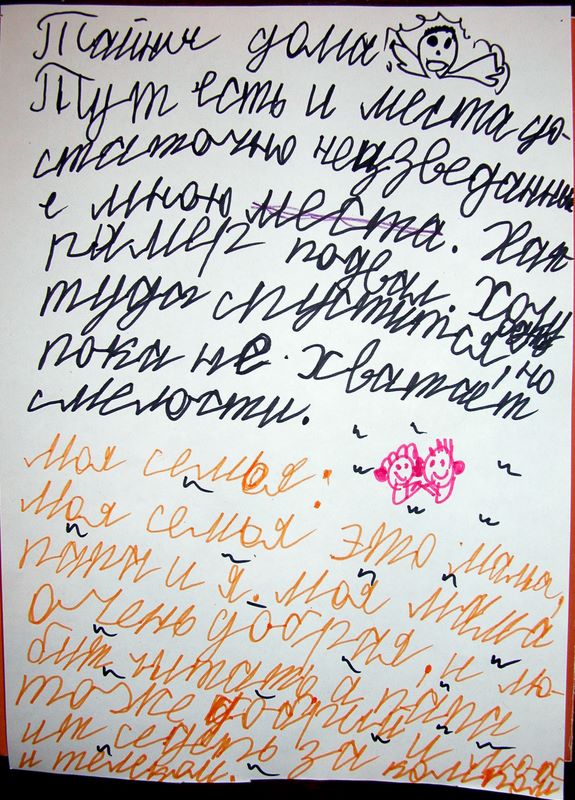 Тайны дома
Тут есть и места до-
статочно неизведанны
е мною места. Нап
ример подвал. Хочу
туда спустится
пока не хватает, но
смелости.
Моя семья:
Моя семья это мама,
папа и я. Моя мама
очень добрая, и лю-
бит читать а папа
тоже добрый и люб
ит седеть за
и телекай.